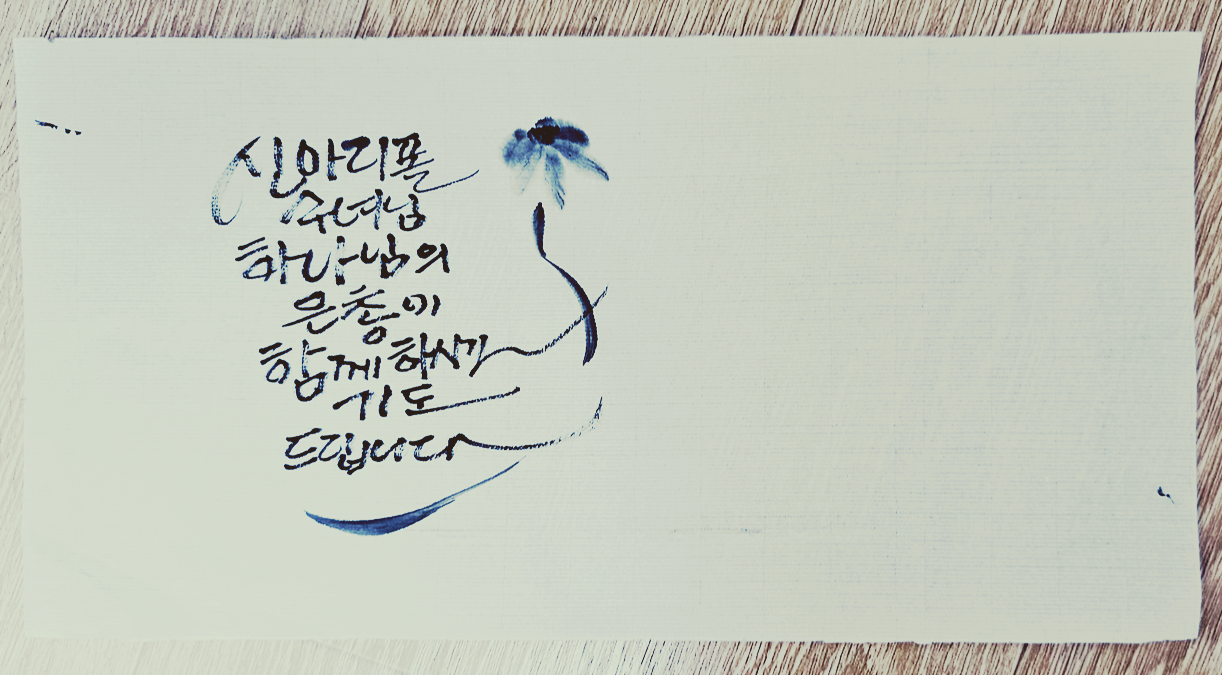 신마리폴
수녀님
하나님의
은총이
함께하시기
기도
드립니다